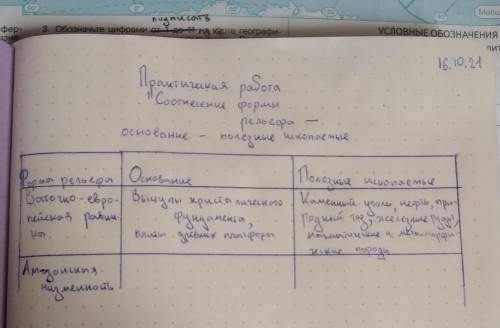 подписать
3. Обозначьте цифрами от 1 до 11 на карте географи-
УСЛОВНЫЕ ОБОЗНАЧЕНИЯ
16.10.21
Практическая работа
"Соотнесение формы
рельефа —
основание — полезные ископаемые
Форма рельефа
Основание
Полезные ископаемые
Восточно-евро-
пейская равни-
на.
Выступы кристалического
фундамента,
плиты древних платформ
Каменный уголь, нефть, при-
родный газ, железные руды,
магматические и метаморфи-
ческие породы
Амазонская
низменность